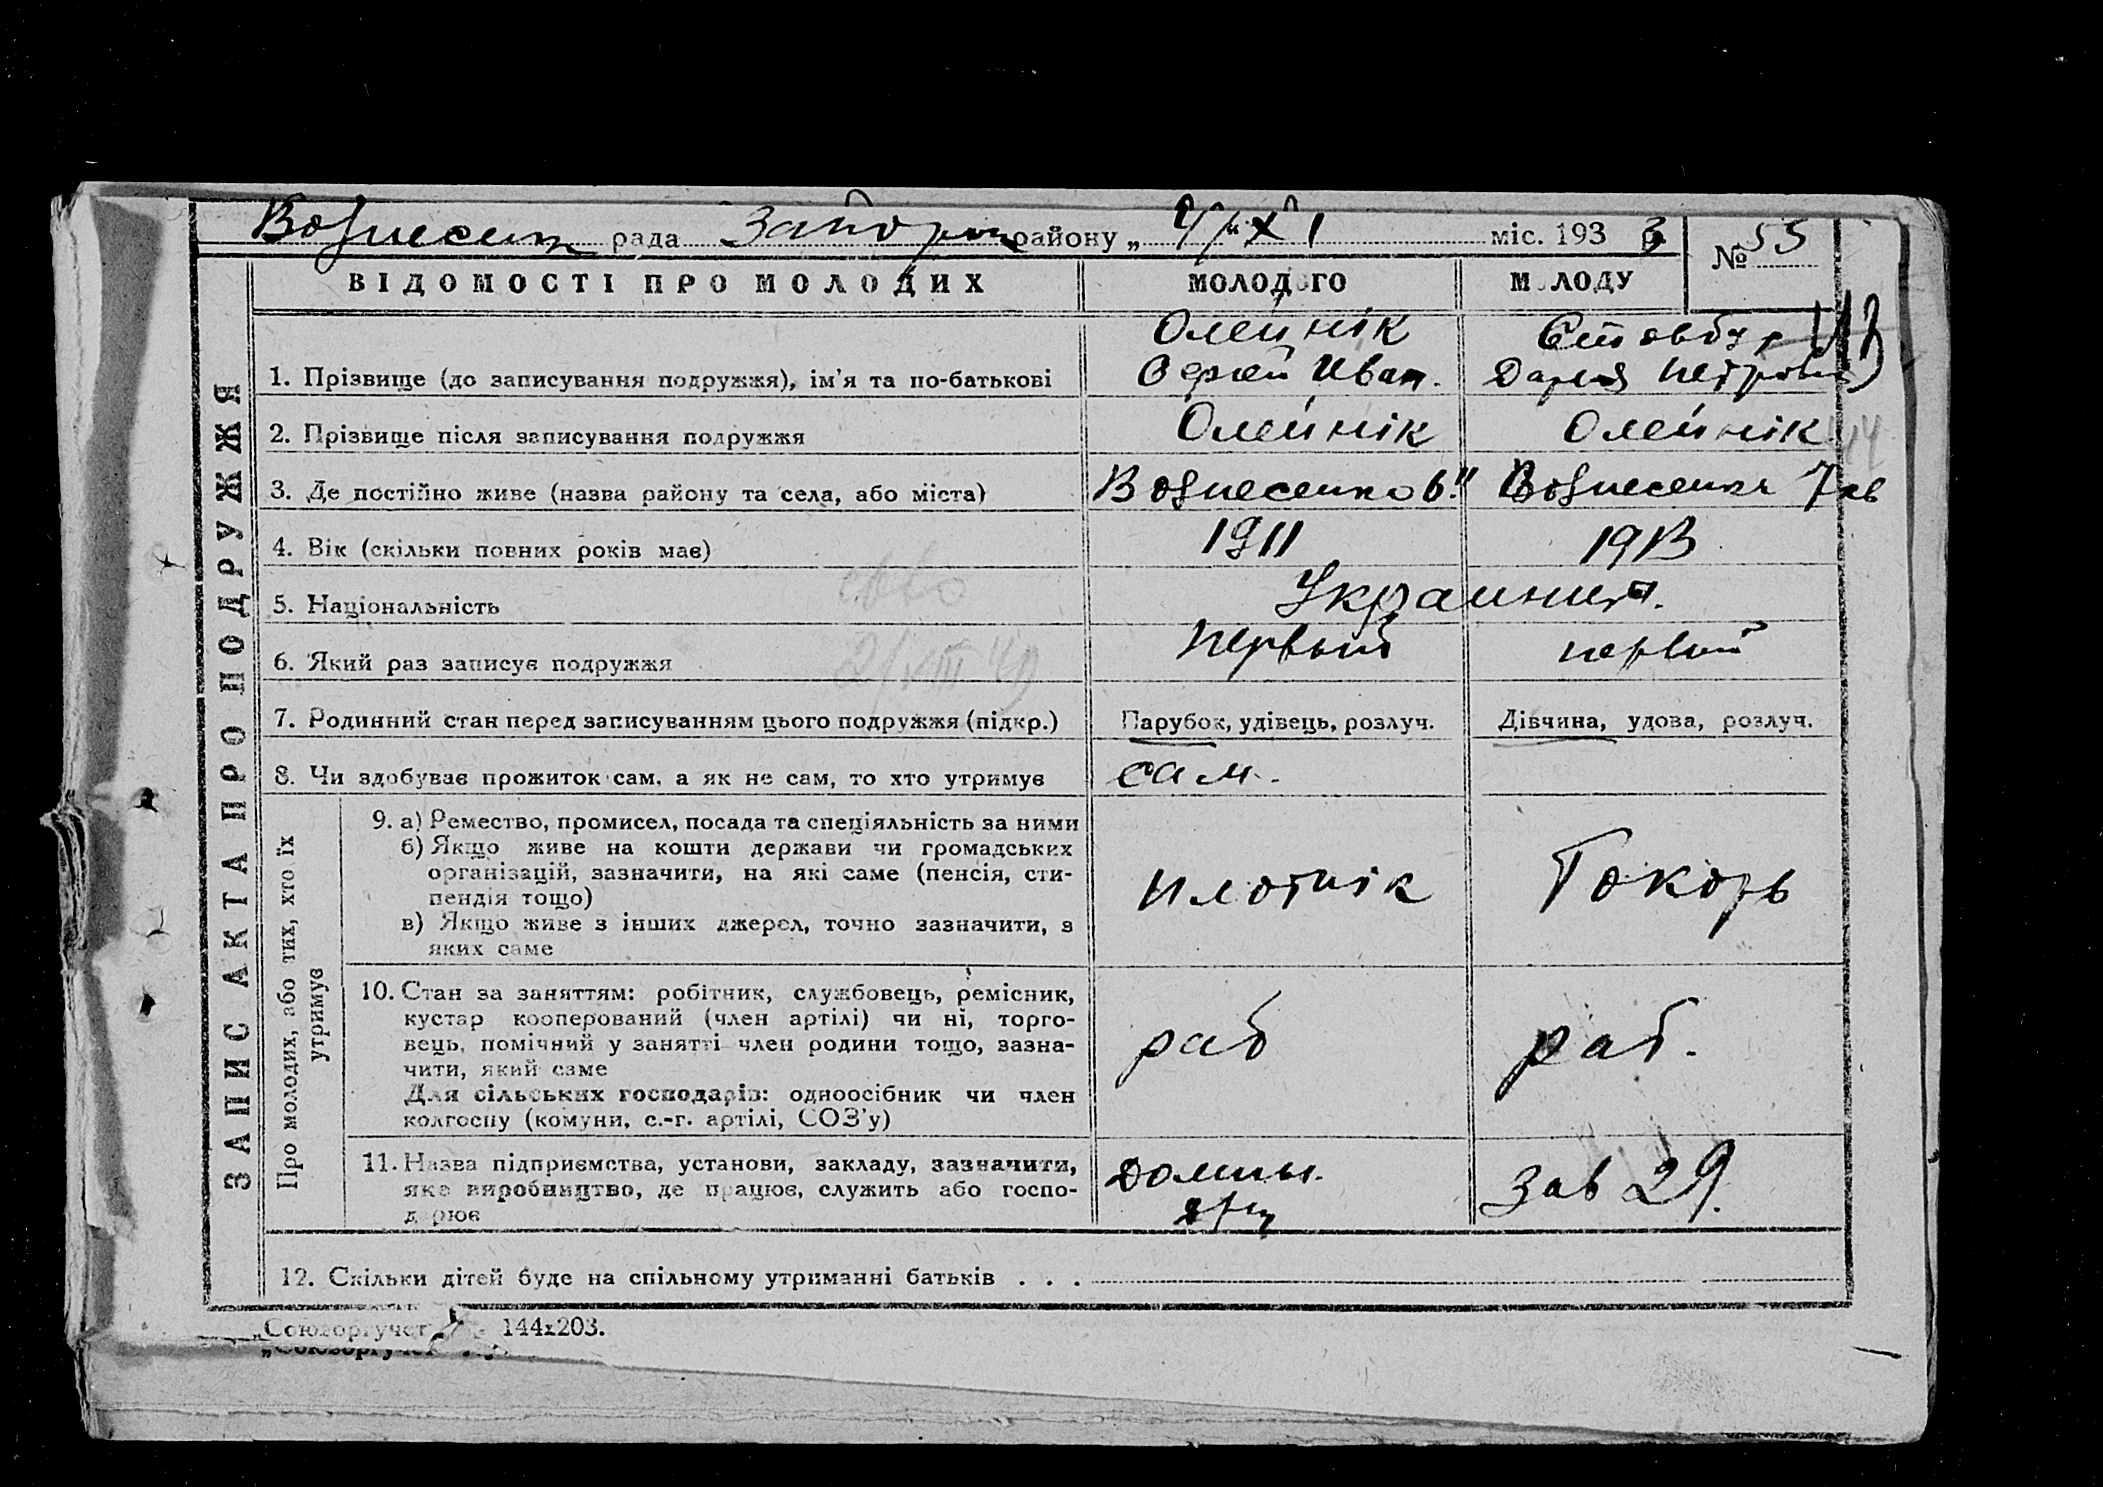 Вознесенк рада Запорож району „ 4/„ XI міс. 193 3 № 55
ВІДОМОСТІ ПРО МОЛОДИХ МОЛОДОГО МОЛОДУ
Олейнік Стовбур
1. Прізвище (до записування подружжя), ім'я та по-батькові Сергей Иван. Дарья Петровн
2. Прізвище після записування подружжя Олейнік Олейнік
3. Де постійно живе (назва району та села, або міста) Вознесенко Вознесенка 7
4. Вік (скільки повних років має) 1911 1913
5. Національність
6. Який раз записує подружжя первый первый
7. Родинний стан перед записуванням цього подружжя (підкр.) Парубок, удівець, розлуч. Дівчина, удова, розлуч.
8. Чи здобуває прожиток сам, а як не сам, то хто утримує сам.
9. а) Ремество, промисел, посада та спеціяльність за ними
б) Якщо живе на кошти держави чи громадських
організацій, зазначити, на які саме (пенсія, сти-
пендія тощо)
в) Якщо живе з інших джерел, точно зазначити, з
яких саме
плотнік Токорь
10. Стан за заняттям: робітник, службовець, ремісник,
кустар кооперований (член артілі) чи ні, торго-
вець, помічний у занятті член родини тощо, зазна-
чити, який саме
Для сільських господарів: одноосібник чи член
колгоспу (комуни, с.-г. артілі, СОЗ'у)
раб раб.
11. Назва підприємства, установи, закладу, зазначити,
яке виробництво, де працює, служить або госпо-
дарює
Домны. Зав 29.
12. Скільки дітей буде на спільному утриманні батьків . . .
ЗАПИС АКТА ПРО ПОДРУЖЖЯ
Про молодих, або тих, хто їх
утримує
„Союзоргучет 144х203.
„Союзоргучет